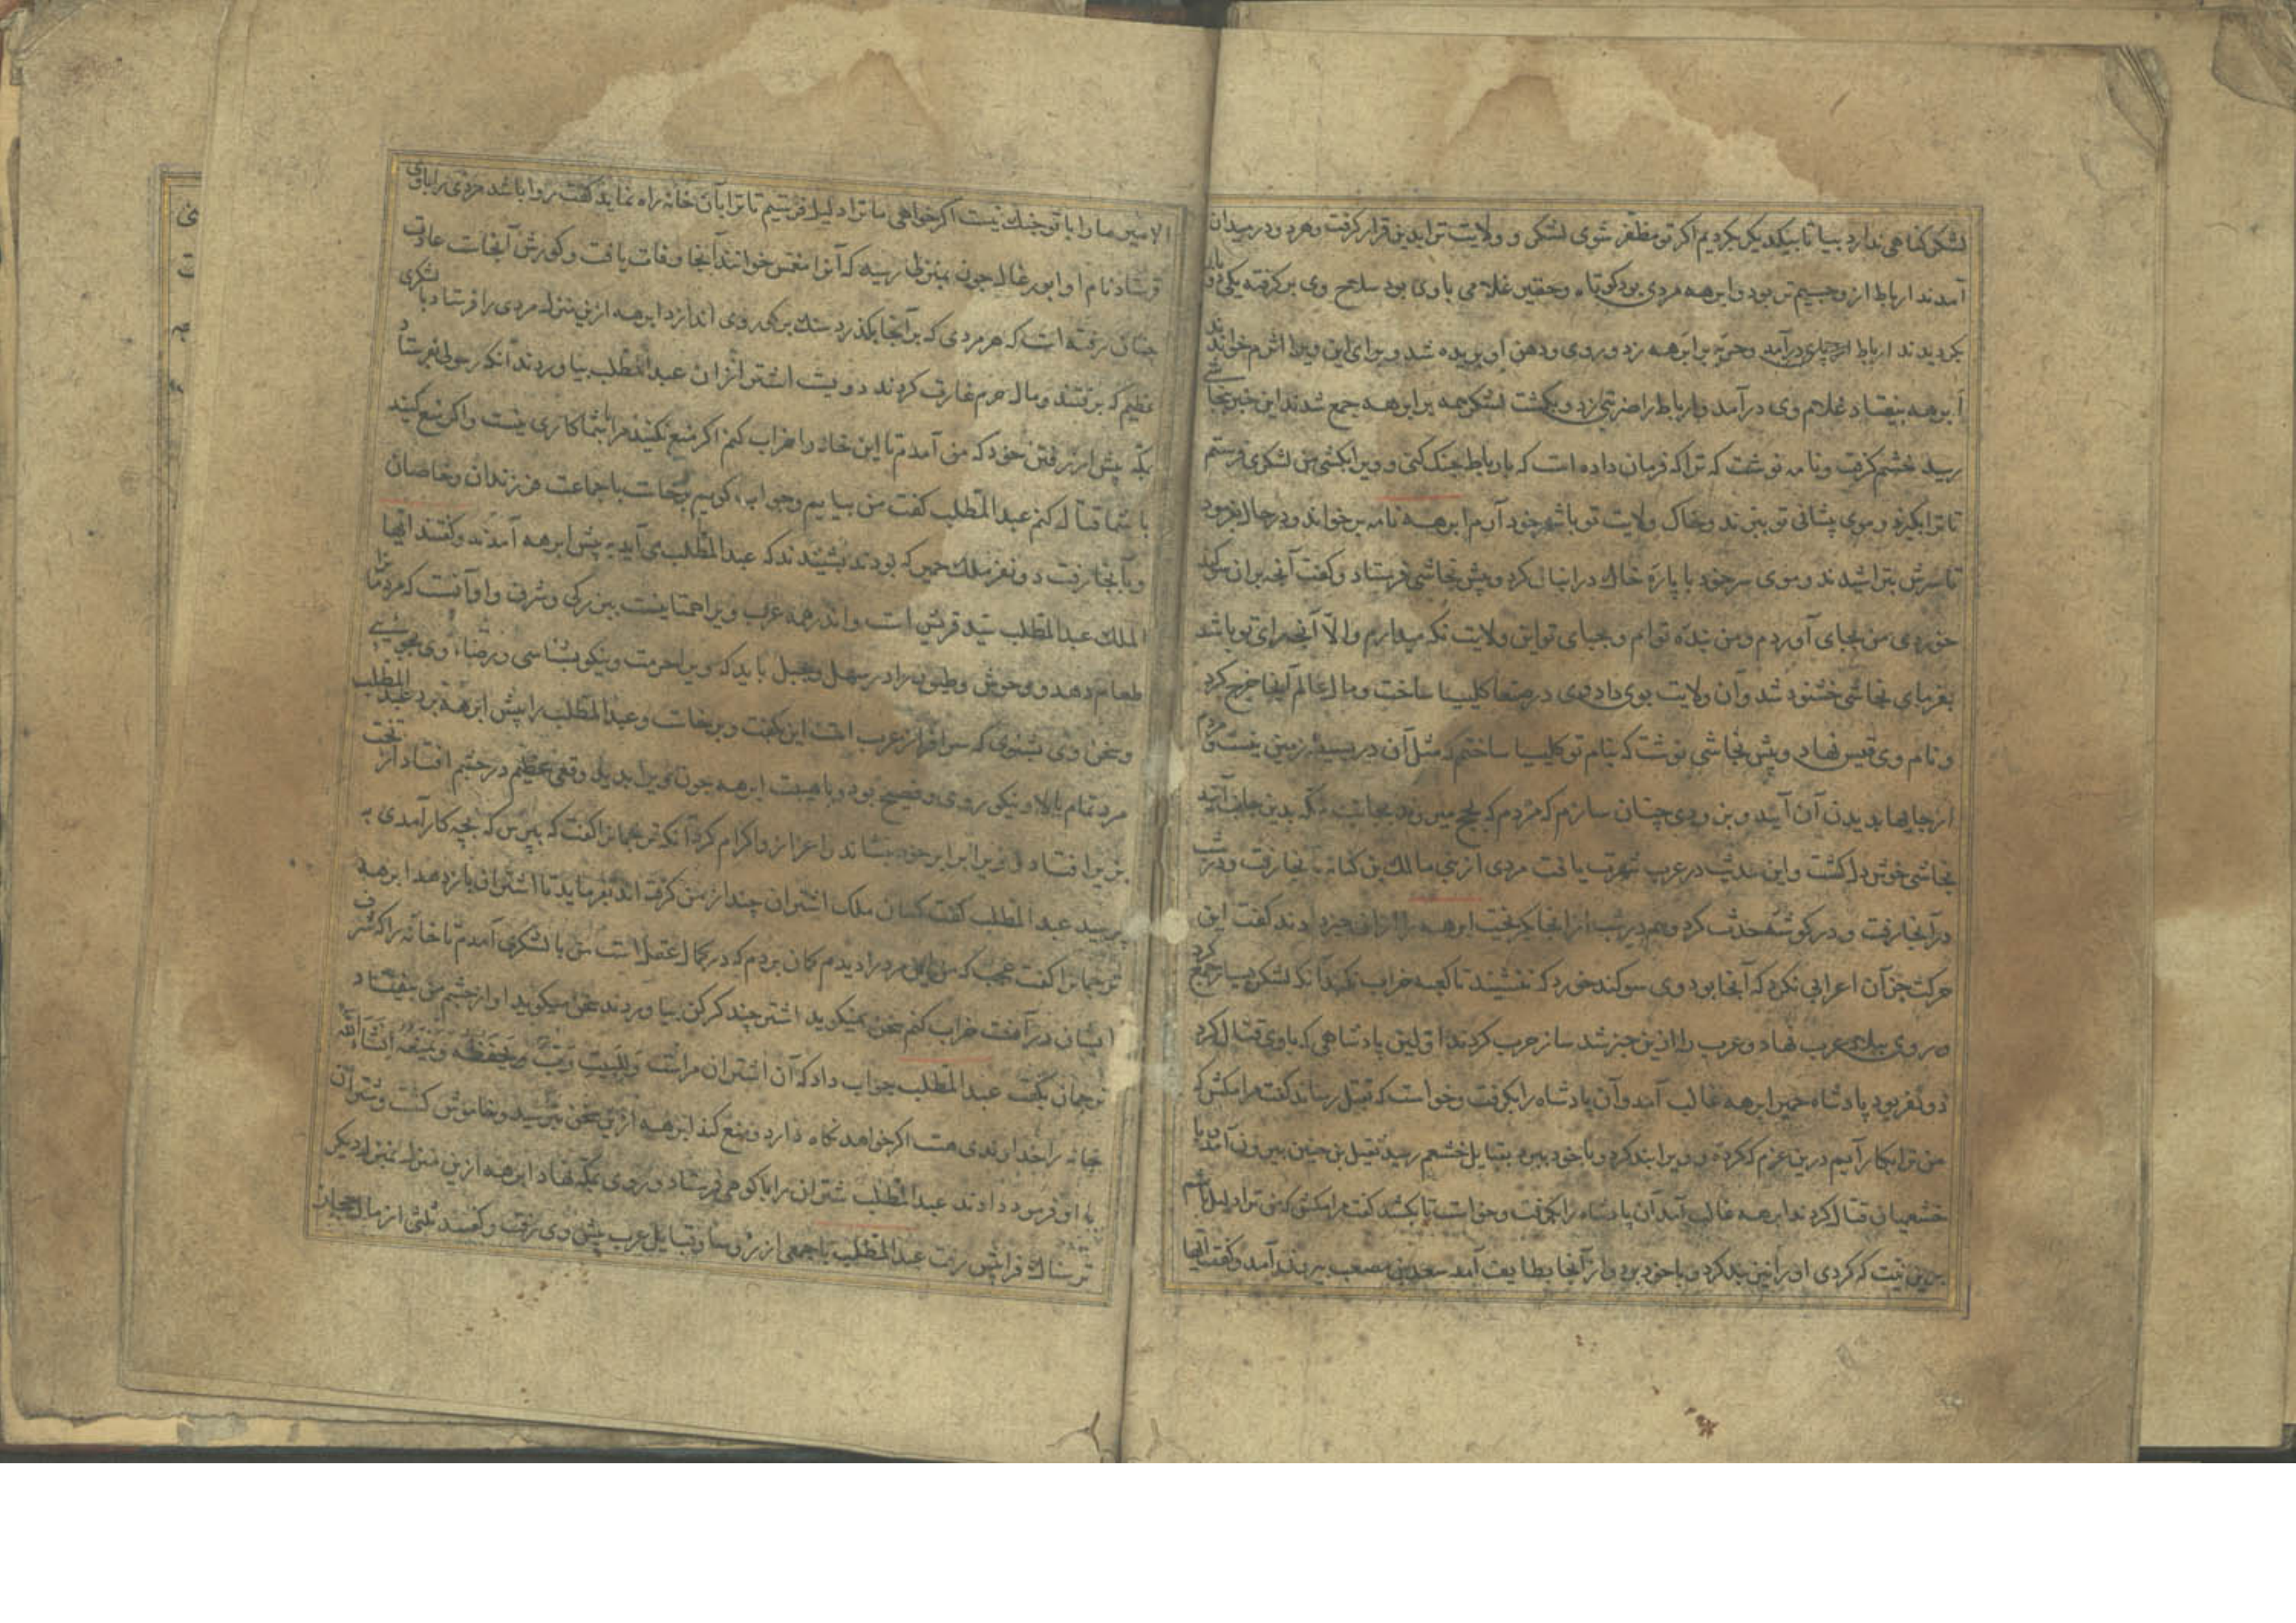 لشکر کناهی ندارد بیا تا بیکدیکر بکردیم اکر تو مظفر شوی لشکر و ولایت ترا بدین قرار کرفت و هر دو در میدان
آمدند ارباط از وجسیم تر بود و ابرهه مردی بود کوتاه و حقیر غلامی با وی بود سلاح وی بر کرفته یکی
بکردیدند ارباط در آمد و حربه بر ابرهه زد و روی و دهن او بریده شد و برای این ویرا اشرم خوانند
ابرهه بیفتاد غلام وی در آمد و ارباط را ضربتی زد و بکشت لشکر همه بر ابرهه جمع شدند این خبر بنجاشی
رسید خشم کرفت و نامه نوشت که ترا که فرمان داده است که با ارباط جنک کنی و ویرا بکشی من لشکری فرستم
تا ترا بکیرند و موی پیشانی تو ببرند و خاک ولایت تو با شهر خود آرم ابرهه نامه بر خواند و در حال بفرمود
تا سرش بتراشیدند و موی سر خود با پاره خاک در انبان کرد و پیش نجاشی فرستاد و کفت آنچه بر آن سوکند
خوردی من بجای آوردم و من بنده توام و بجای تو این ولایت نکه میدارم و الا آنچه رای تو باشد
بفرمای نجاشی خشنود شد و آن ولایت بوی داد وی در صنعا کلیسا ساخت و مال عالم آنجا خرج کرد
و نام وی قیس نهاد و پیش نجاشی نوشت که بنام تو کلیسا ساختم که مثل آن در بسیط زمین نیست و مردم
از جایها بدیدن آن آیند و بزودی چنان سازم که مردم که بحج میروند بجانب مکه بدین جانب آیند
نجاشی خوش دل کشت و این حدیث در عرب شهرت یافت مردی از بنی مالک بن کنانه بآنجا رفت و در شب
در آنجا رفت و در کوشه حدث کرد و هم در شب از آنجا بکریخت ابرهه را از آن خبر دادند کفت این
حرکت جز آن اعرابی نکرد که آنجا بود وی سوکند خورد که ننشیند تا کعبه خراب نکند آنکه لشکر بسیار جمع کرد
و روی ببلاد عرب نهاد و عرب را ازین خبر شد ساز حرب کردند اولین پادشاهی که با وی قتال کرد
ذو نفر بود پادشاه حمیر ابرهه غالب آمد و آن پادشاه را بکرفت و خواست که بقتل رساند کفت مرا مکش که
من ترا بکار آیم درین عزم که کرده و ویرا بند کرد و با خود ببرد بقبایل خشعم رسید نفیل بن حبیب بیرون آمد با
خشعمیان قتال کردند ابرهه غالب آمد آن پادشاه را بکرفت و خواست تا بکشد کفت مرا مکش که من ترا دلیل باشم
برین نیت که کردی او را نیز بند کرد و با خود برد و از آنجا بطایف آمد مصعب بیرون آمد و کفت ایها
الامیر ما را با تو جنک نیست اکر خواهی ما ترا دلیل فرستیم تا ترا بآن خانه راه نماید کفت روا باشد مردی را با وی
فرستاد نام او ابورغال چون بمنزل رسید که آنرا مغمس خوانند آنجا وفات یافت و کورش آنجاست عادت
چنان رفته است که هر مردی که بر آنجا بکذرد سنک بر کور وی اندازد ابرهه ازین منزل مردی را فرستاد با لشکری
عظیم که برفتند و مال حرم غارت کردند دویست اشتر از آن عبدالمطلب بیاوردند آنکه رسول بفرستاد
بمکه پیش از رفتن خود که من آمدم تا این خانه را خراب کنم اکر منع نکنید مرا با شما کاری نیست و اکر منع کنید
با شما قتال کنم عبدالمطلب کفت من بیایم و جواب کویم برخاست با جماعت فرزندان و خاصان
و بآنجا رفت ذو نفر ملک حمیر که بودند بشنیدند که عبدالمطلب می آید به پیش ابرهه آمدند و کفتند ایها
الملک عبدالمطلب سید قریش است و اندر همه عرب ویرا همتا نیست ببزرکی و شرف و او آنست که مردم را
طعام دهد و وحوش و طیور را در سهل و جبل باید که ویرا حرمت نیکو بشناسی و رضاء وی بجویی
و سخن وی بشنوی که سرافراز عرب است این بکفت و برخاست و عبدالمطلب را پیش ابرهه برد عبدالمطلب
مرد تمام بالا و نیکو روی و فصیح بود و با هیبت ابرهه چون ویرا بدید وقعی عظیم در چشم افتاد از تخت
بزیر افتاد و ویرا برابر خود بنشاند و اعزاز و اکرام کرد آنکه ترجمانرا کفت که بپرس که بچه کار آمدی
پرسید عبدالمطلب کفت کسان ملک اشتران چند از من کرفته اند بفرماید تا اشتران باز دهد ابرهه
ترجمانرا کفت عجب که من این مرد را دیدم کمان بردم که در کمال عقل است من با لشکری آمدم تا خانه را که شرف
ایشان در آنست خراب کنم سخن نمیکوید اشتر چند کرکن بیاوردند سخن میکوید او از چشم من بیفتاد
ترجمان بکفت عبدالمطلب جواب داد که آن اشتران مراست و للبیت رب یحفظه و یمنعه انشاء الله
خانه را خداوندی هست اکر خواهد نکاه دارد و منع کند ابرهه ازین سخن بترسید و خاموش کشت و شتران
به او فرمود دادند عبدالمطلب شتران را با کوهی فرستاد و روی بمکه نهاد ابرهه ازین منزل بمنزل دیکر
ترسناک فراپیش رفت عبدالمطلب با جمعی از رؤسا و قبایل عرب پیش وی رفت و کفتند ثلثی از مال حجاز